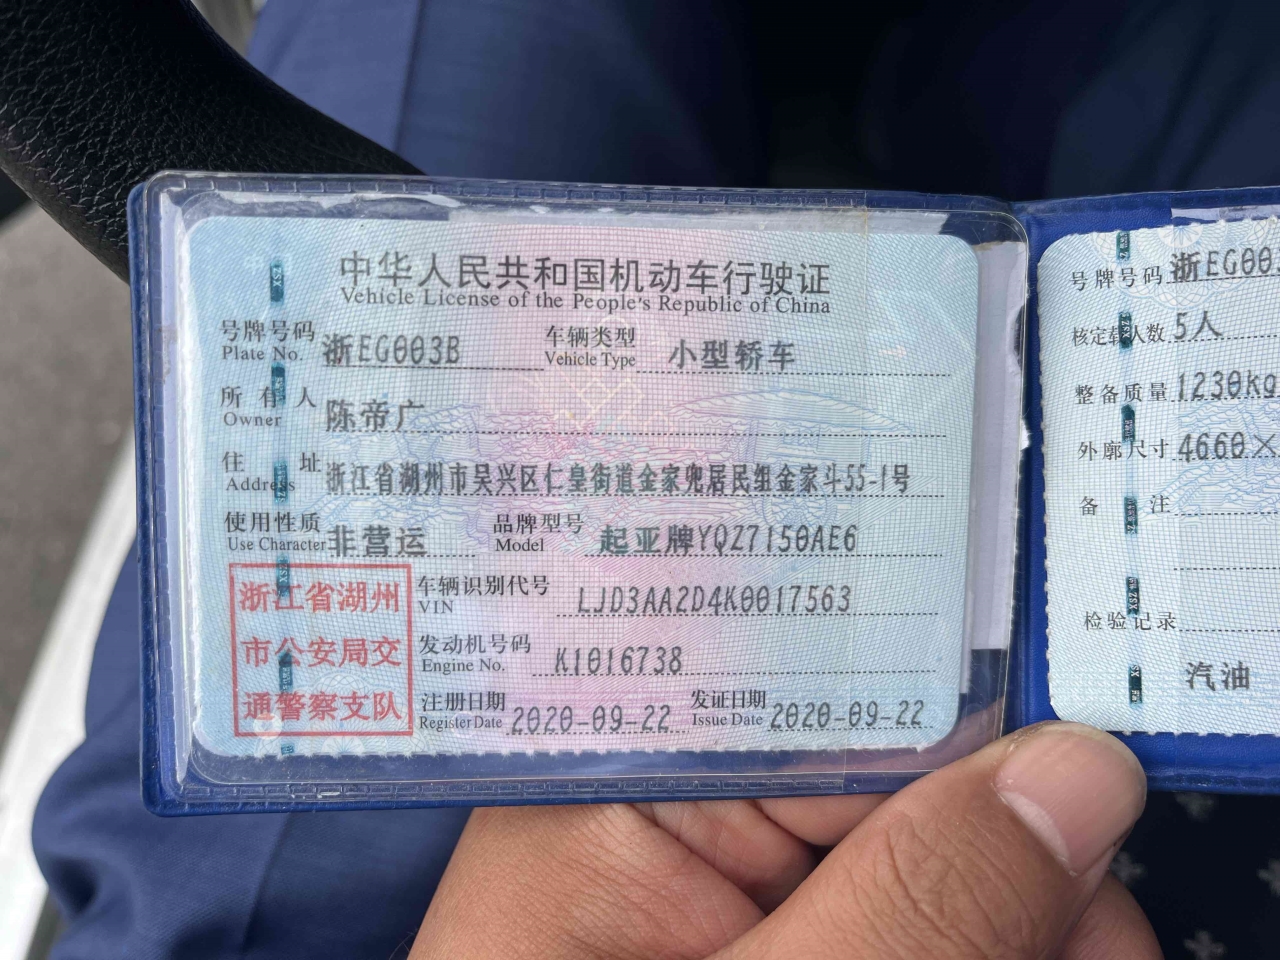 中华人民共和国机动车行驶证
Vehicle License of the People's Republic of China
号牌号码 浙EG003B 车辆类型 小型轿车
Plate No. Vehicle Type
所有人 陈帝广
Owner
住址 浙江省湖州市吴兴区仁皇街道金家兜居民组金家斗55-1号
Address
使用性质 非营运 品牌型号 起亚牌YQZ7150AE6
Use Character Model
浙江省湖州
市公安局交
通警察支队
车辆识别代号 LJD3AA2D4K0017563
VIN
发动机号码 K1016738
Engine No.
注册日期 2020-09-22 发证日期 2020-09-22
Register Date Issue Date
号牌号码 浙EG003
核定载人数 5人
整备质量 1230kg
外廓尺寸 4660×
备注
检验记录
汽油